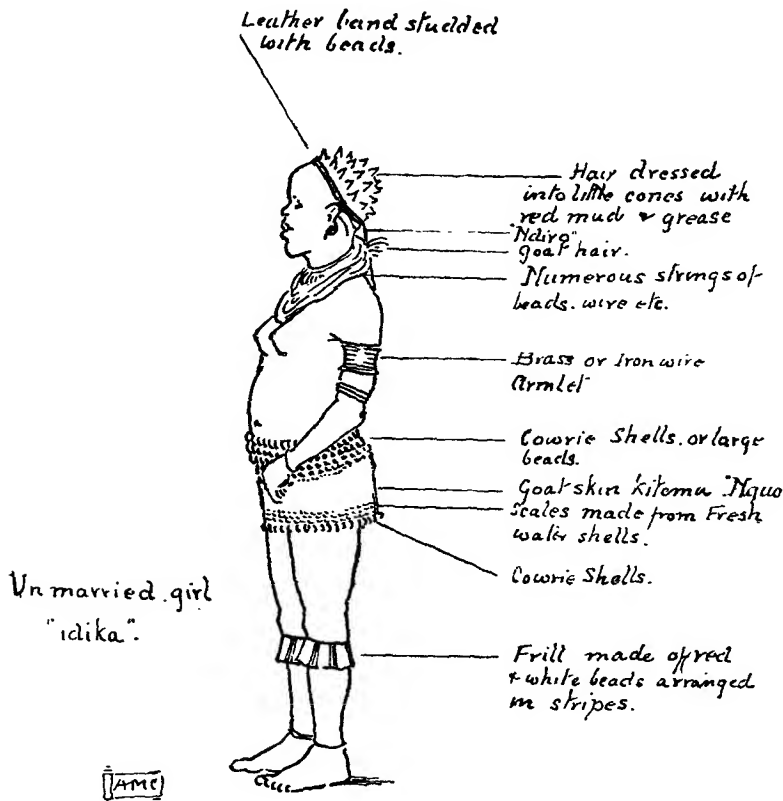 Leather band studded
with beads.
Hair dressed
into little cones with
red mud & grease
"Ndiro"
goat hair.
Numerous strings of
beads. wire etc.
Brass or Iron wire
Armlet
Cowrie Shells. or large
beads.
Goat skin kitemu "Nguo
Scales made from Fresh
water shells.
Cowrie Shells.
Unmarried girl
"idika".
Frill made of red
& white beads arranged
in stripes.
AMC